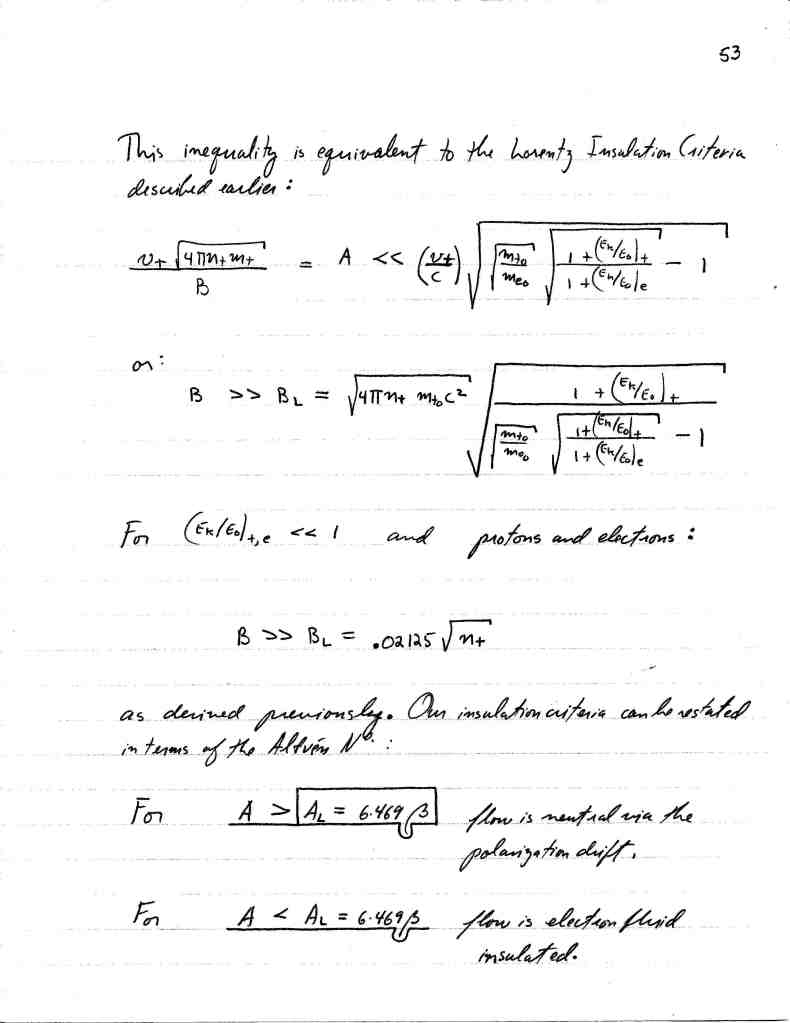 53
This inequality is equivalent to the Lorentz Insulation Criteria
described earlier :
v₊ √(4πn₊m₊) / B = A << (v₊/c) √( √(m₊₀/mₑ₀) √( (1 + (Eₖ/E₀)₊) / (1 + (Eₖ/E₀)ₑ) ) - 1 )
or :
B >> B_L = √(4πn₊ m₊₀c²) √( (1 + (Eₖ/E₀)₊) / ( √(m₊₀/mₑ₀) √( (1 + (Eₖ/E₀)₊) / (1 + (Eₖ/E₀)ₑ) ) - 1 ) )
For (Eₖ/E₀)₊,ₑ << 1 and protons and electrons :
B >> B_L = .02125 √n₊
as derived previously. Our insulation criteria can be restated
in terms of the Alfvén Nº. :
For A > A_L = 6.469 β flow is neutral via the
polarization drift.
For A < A_L = 6.469 β flow is electron fluid
insulated.